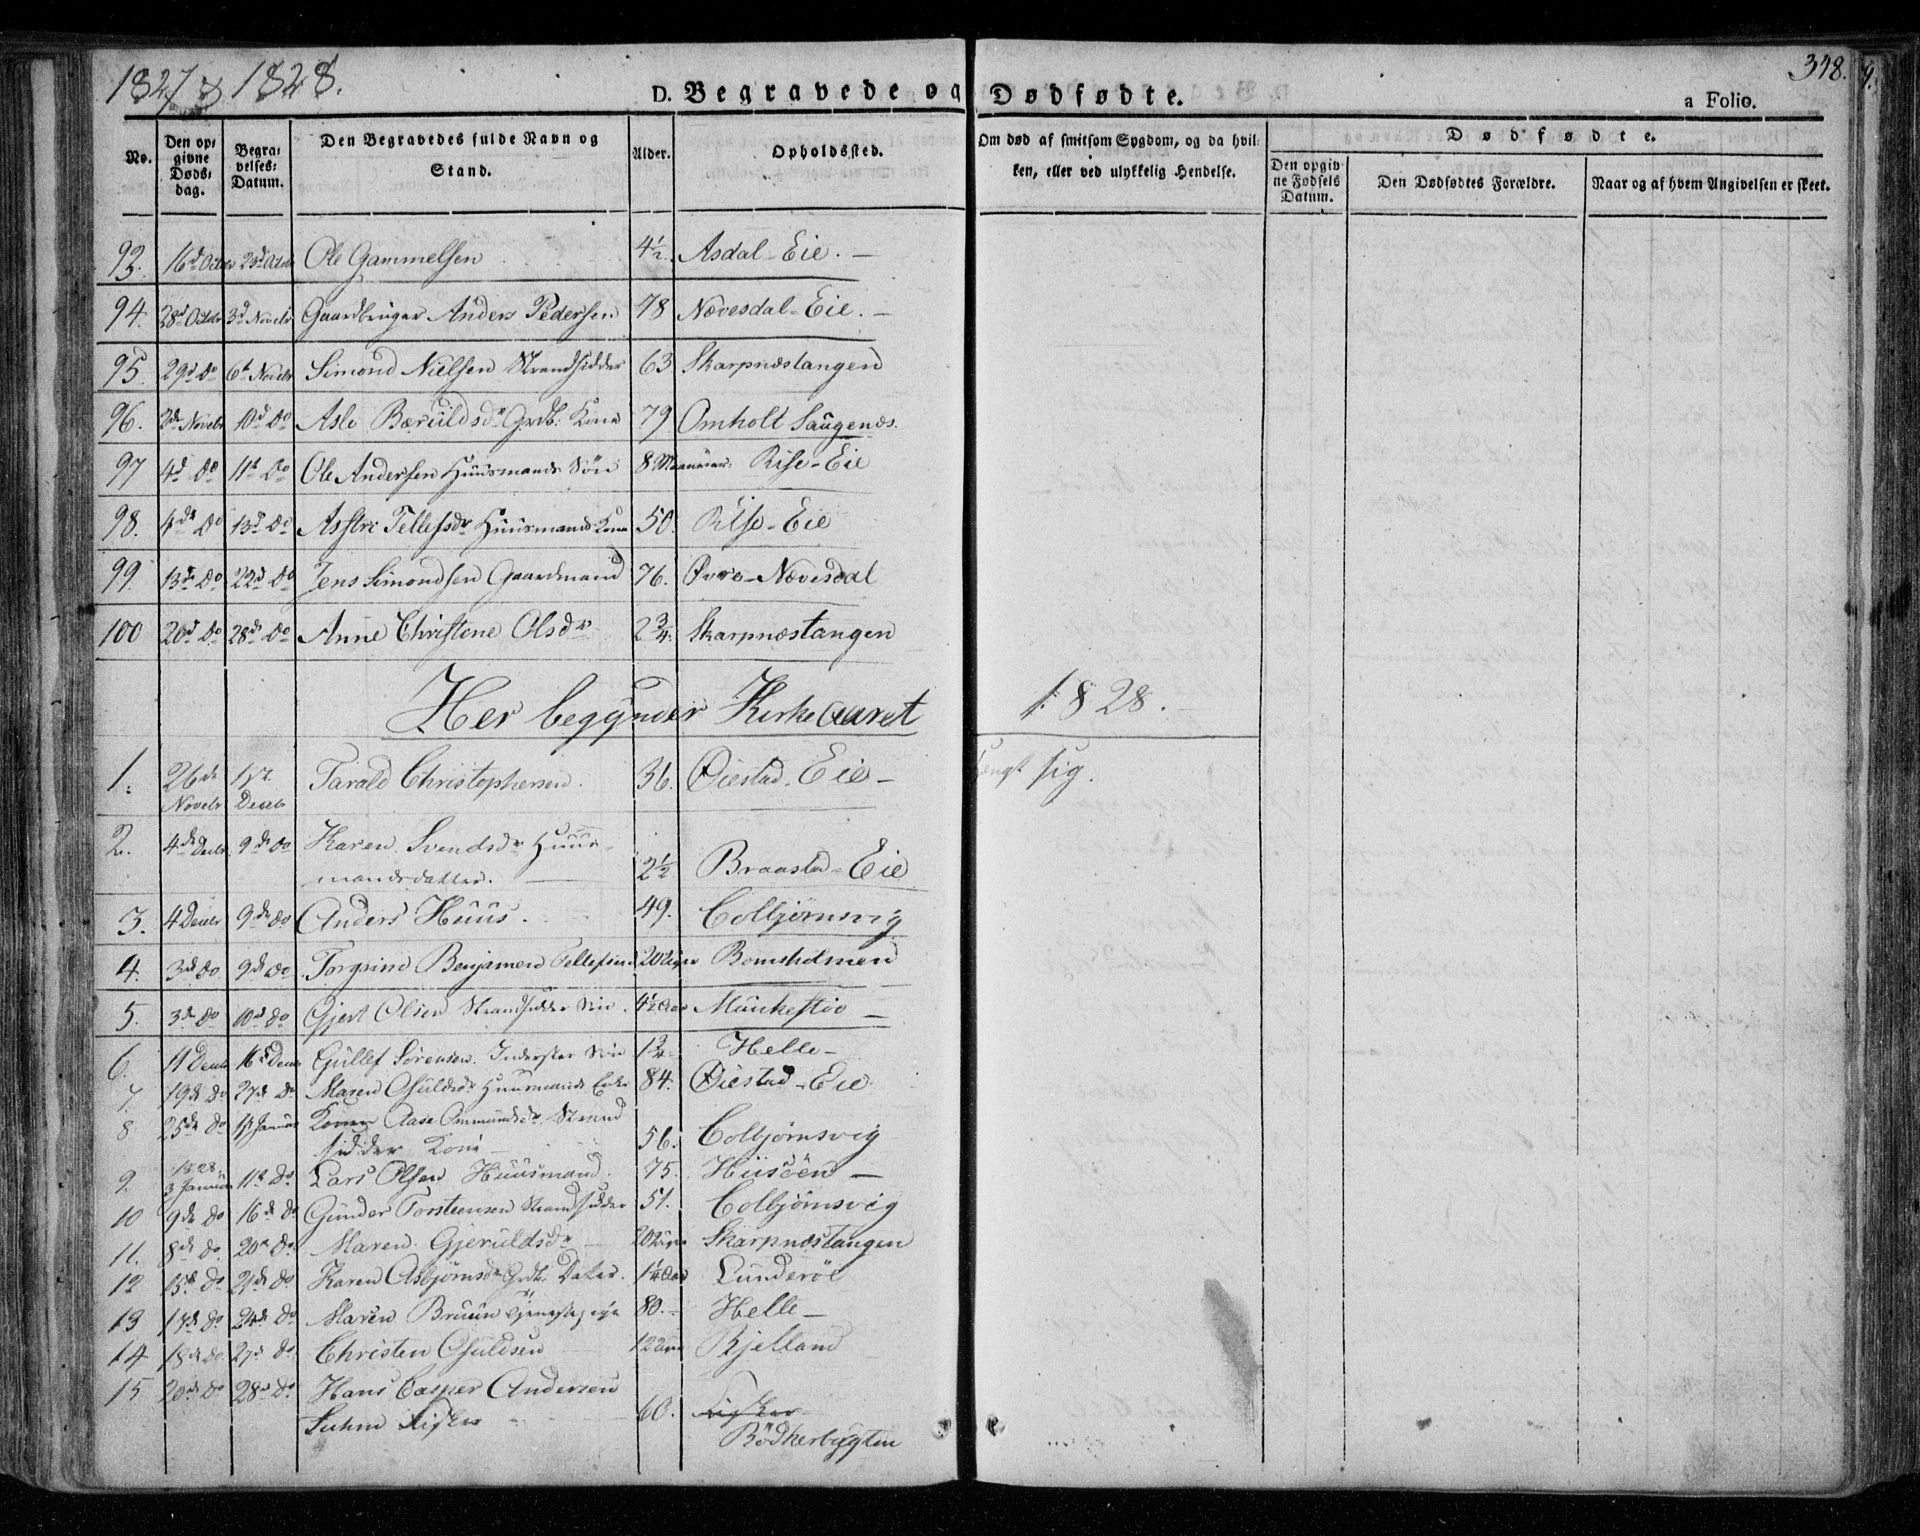 1827 & 1828.
348.
D. Begravede og Dødfødte.
a Folio.
No.
Den opgivne Dødsdag.
Begravelses-Datum.
Den Begravedes fulde Navn og Stand.
Alder.
Opholdssted.
Om død af smitsom Sygdom, og da hvilken, eller ved ulykkelig Hendelse.
Dødfødte.
Den opgivne Fødsels Datum.
Den Dødfødtes Forældre.
Naar og af hvem Angivelsen er skeet.
93. 16d Octbr 23d Octbr Ole Gammelsen 4 1/2. Asdal-Eie. -
94. 28d Octbr 3d Novebr Gaardbruger Anders Pedersen 78 Nævesdal-Eie. -
95. 29d do 6t Novebr Simond Nielsen Strandsidder 63 Skarpnæstangen
96. 3d Novebr 10d do Grdb. Kone 79. Omholt Saugenæs.
97 4d do 11t do Ole Andersen Huusmands Søn 8 Maaneder. Rise-Eie
98. 4de do 13d do Tellefsdr Huusmands Kone 50. Rise-Eie
99. 13de do 22d do Jens Simondsen Gaardmand 76. Øvre-Nævesdal
100 20d do 28de do Anne Christene Olsdr 2 3/4. Skarpnæstangen
Her begynder Kirkeaaret 1828.
1. 26de Novebr 1ste Decb Tarald Christophersen. 36. Øiestad-Eie - hængt sig.
2. 4de Decbr 9de do Karen Svendsdr Huusmandsdatter. 2 1/2 Braastad-Eie
3. 4 Decbr 9de do Anders Huus. 49. Colbjørnsvig
4. 3de do 9de do Benjamen Tellefsen 20 Uger Bomsholmen
5. 3de do 10d do Gjert Olsen Strandsidder Søn. 4 1/2 Aar -
6. 11 Decbr 16d Decbr Gullef Sørensen. Inderster Søn 1 3/4. Helle-
7. 19de do 27de do Maren Osuldsdr Huusmands Enke 84. Øiestad-Eie.
8 25de do 1st Januar Aase Ommundsdr. Strandsidder Kone 56. Colbjørnsvig
9. 1828 3 Januar 11te do Lars Olsen Huusmand. 75. Hiisøen -
10 9de do 16de do Gunder Torstensen Strandsidder 51. Colbjørnsvig
11. 8de do 20d do. Maren Gjeruldsdr 20 Uger Skarpnæstangen
12 15de do 21de do Karen Asbjørnsdr Grdb. Datter. 1 1/4 Aar Lunderöe
13 17de do 24de do Maren Bruun 80.- Helle-
14 18de do 27de do Christen Osuldsen 12 Bjelland
15 20de do 28de do Hans Casper Andersen Suhm Fisker 60. Fisker Bödkerbugten